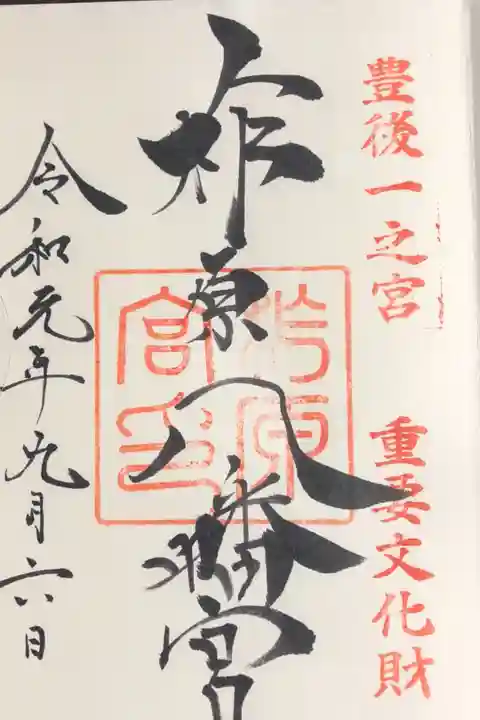 豊後一之宮 重要文化財
柞原八幡宮
柞原
宮印
令和元年九月六日